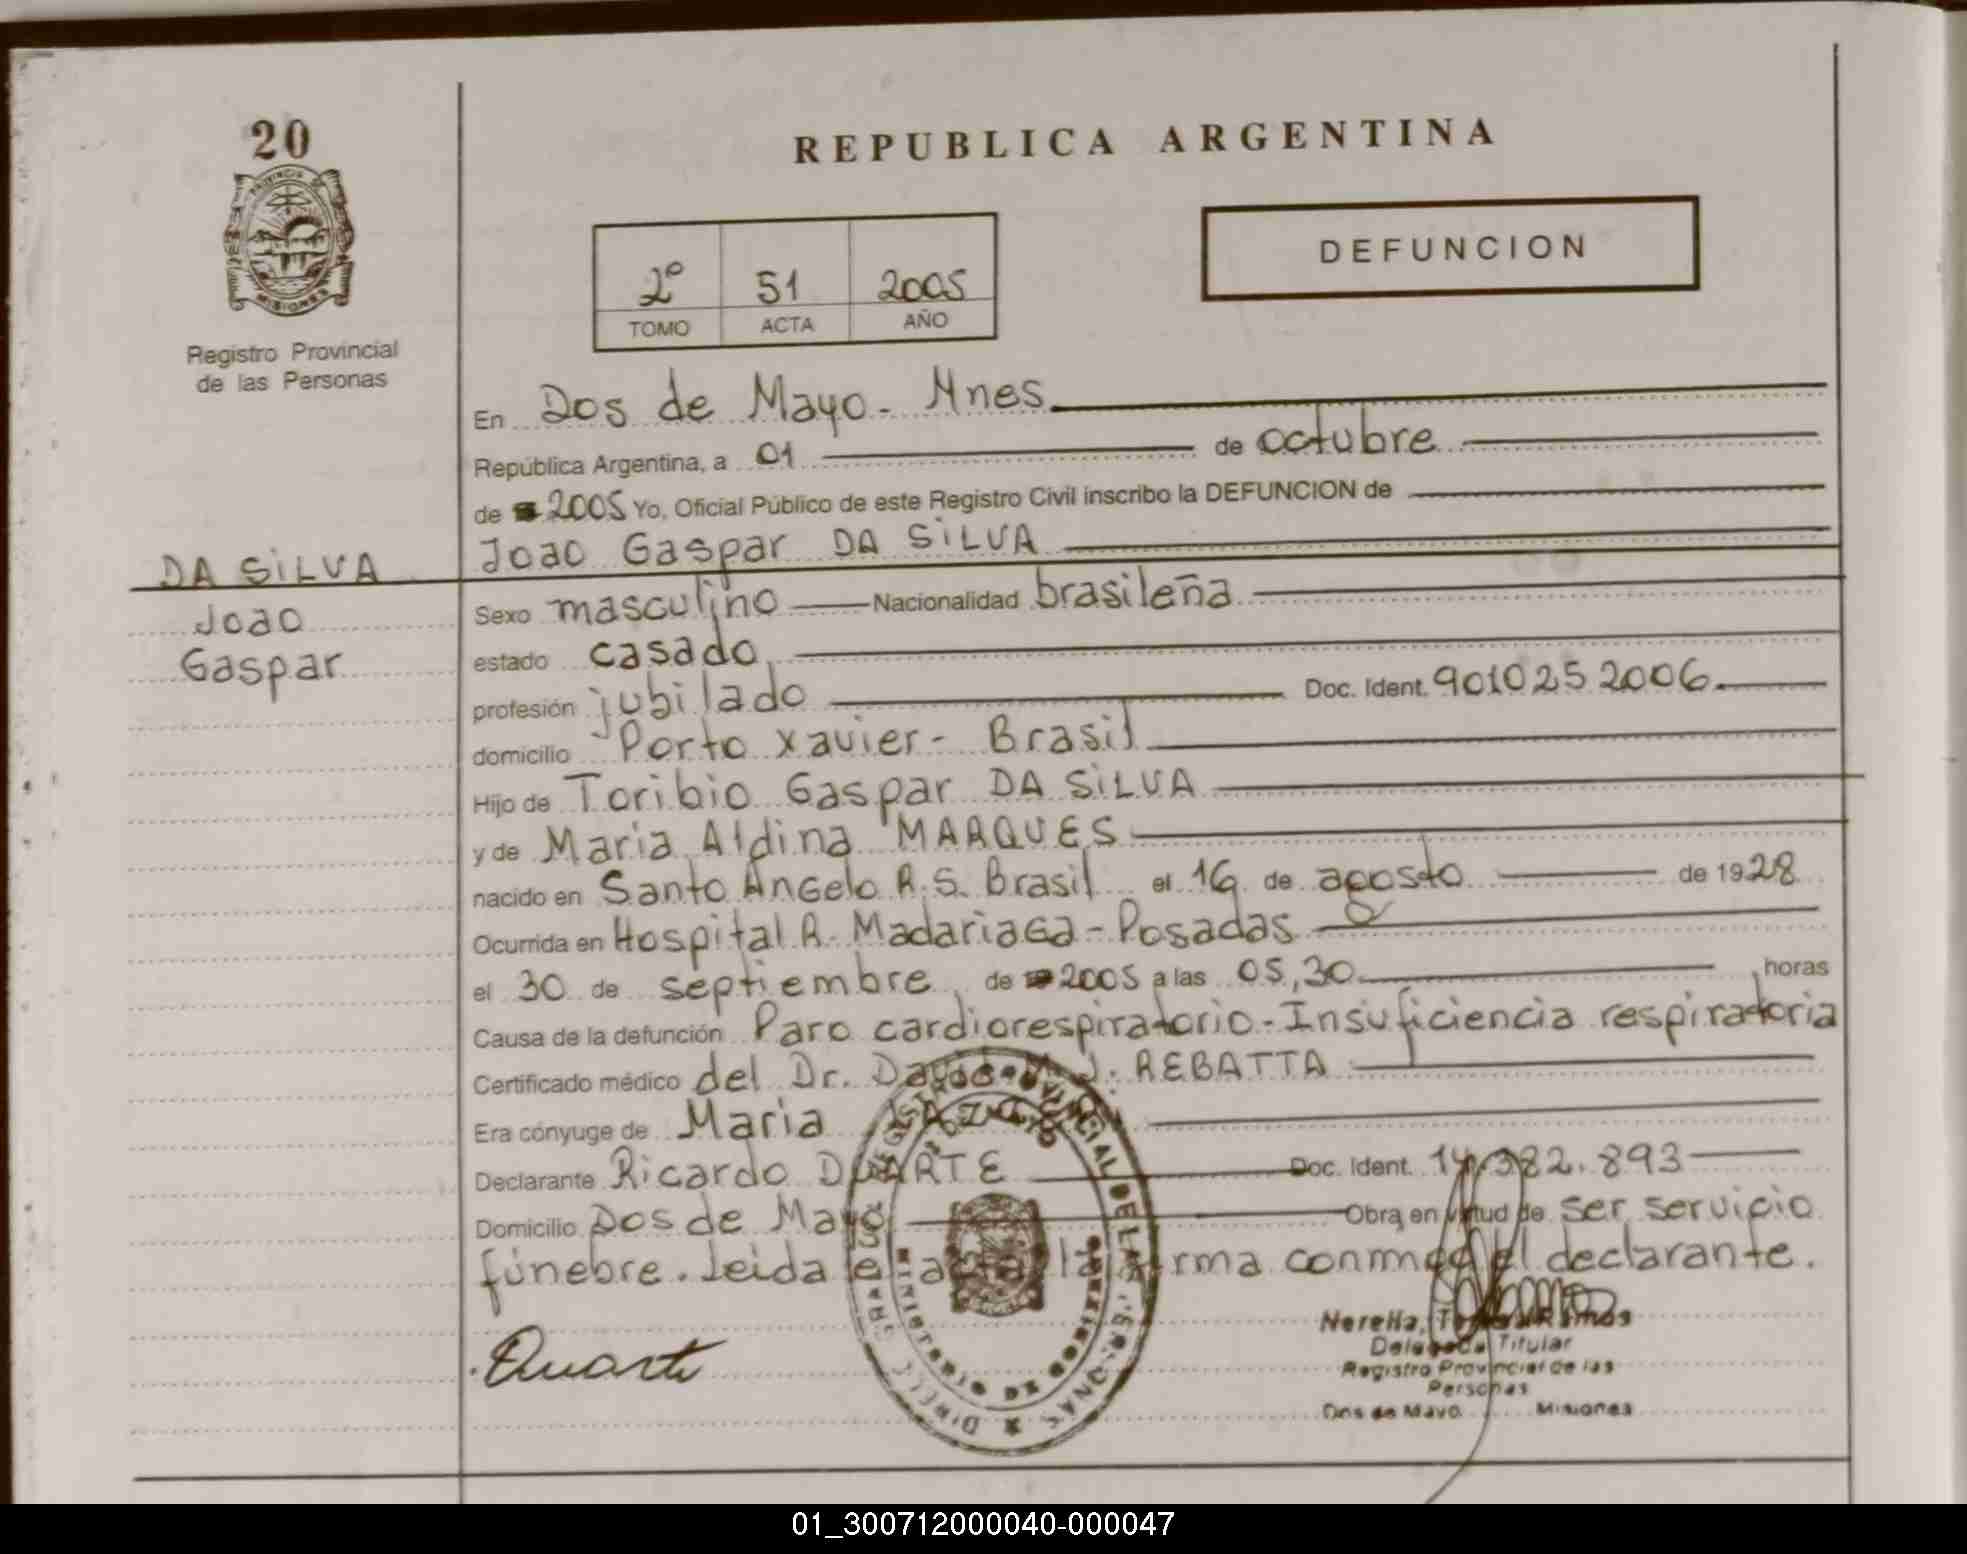 20
PROVINCIA DE
MISIONES
Registro Provincial
de las Personas
REPUBLICA ARGENTINA
2º 51 2005
TOMO ACTA AÑO
DEFUNCION
En Dos de Mayo - Mnes
República Argentina, a 01 de octubre
de 2005 Yo, Oficial Público de este Registro Civil inscribo la DEFUNCION de
DA SILVA
Joao
Gaspar
Joao Gaspar DA SILVA
Sexo masculino Nacionalidad brasileña
estado casado
profesión jubilado Doc. Ident. 9010252006.
domicilio Porto Xavier - Brasil
Hijo de Toribio Gaspar DA SILVA
y de Maria Aldina MARQUES
nacido en Santo Angelo R.S. Brasil el 16 de agosto de 1928
Ocurrida en Hospital R. Madariaga - Posadas
el 30 de septiembre de 2005 a las 05,30 horas
Causa de la defunción Paro cardiorespiratorio - Insuficiencia respiratoria
Certificado médico del Dr. J. REBATTA
Era cónyuge de Maria
Declarante Ricardo DUARTE Doc. Ident. 14.382.893
Domicilio Dos de Mayo Obra en virtud de ser servicio
fúnebre. Leida el acta la firma conmigo el declarante.
Duarte
Nerella, Ramos
Delegada Titular
Registro Provincial de las
Personas
Dos de Mayo Misiones
01_300712000040-000047